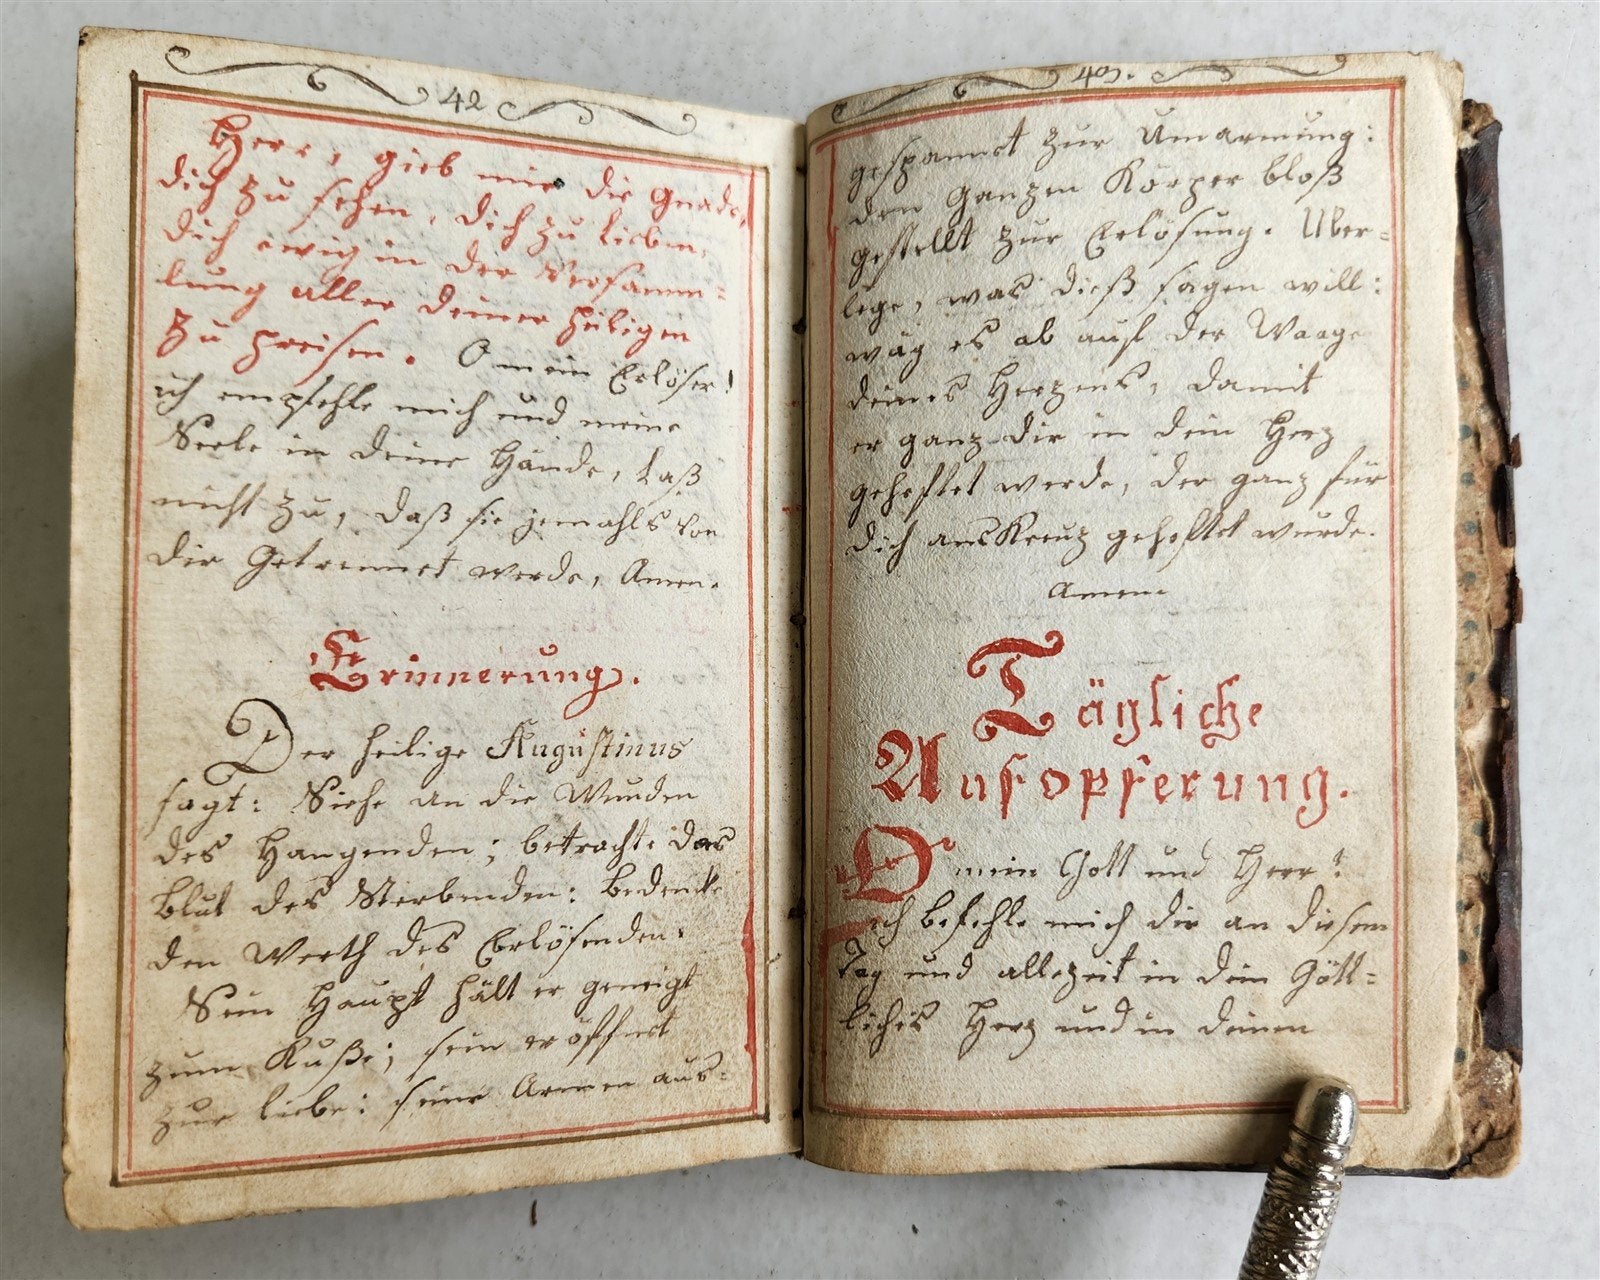 42
Herr, gieb mir die Gnade,
dich zu sehen, dich zu lieben,
dich ewig in der Versamm=
lung aller deiner Heiligen
zu preisen. O mein Erlöser!
ich empfehle mich und meine
Seele in deine Hände, laß
nicht zu, daß sie jemahls von
dir Getrennet werde, Amen.
Erinnerung.
Der heilige Augustinus
sagt: Siehe an die Wunden
des Hangenden; betrachte das
Blut des Sterbenden: bedencke
den Werth des Erlösenden.
Sein Haupt hält er geneigt
zum Kuße; sein eröffnet
zur liebe: seine Armen aus=
43.
gespannet zur Umarmung:
den ganzen Körper bloß
gestellt zur Erlösung. Uber=
lege, was dieß sagen will:
wäg es ab auf der Waage
deines Herzens, damit
er ganz dir in dein Herz
geheftet werde, der ganz für
dich ans Kreuz geheftet wurde.
Amen
Tägliche
Aufopferung.
O mein Gott und Herr!
ich befehle mich dir an diesem
Tag und allezeit in dein Gött=
liches Herz und in deinen